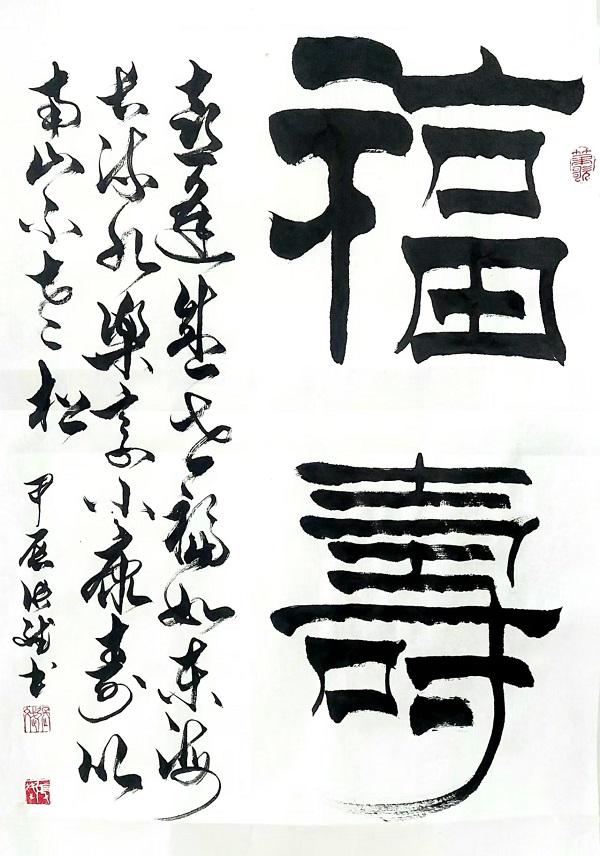 福壽
喜逢盛世福如东海
长流水樂享小康寿比
南山不老松
甲辰 书